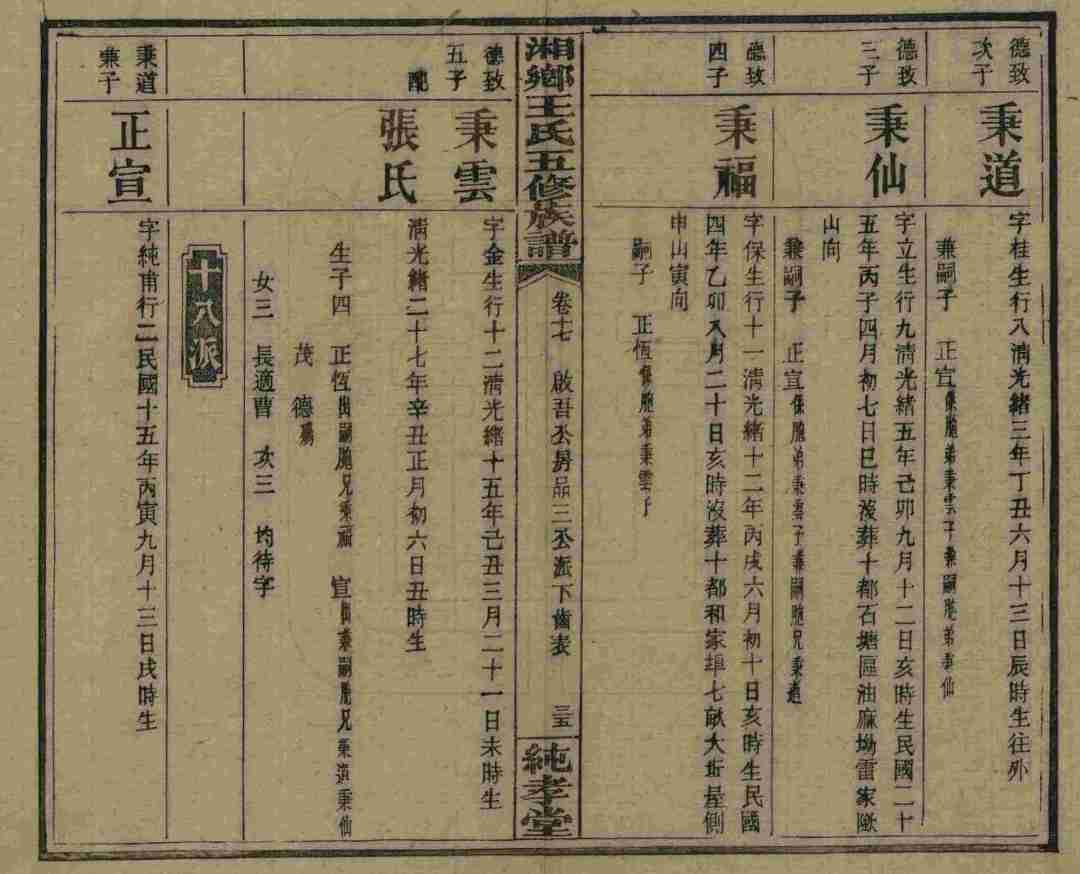 德致
次子
秉道
字桂生行八清光緒三年丁丑六月十三日辰時生往外
兼嗣子 正宣係胞弟秉雲子兼嗣胞弟秉仙
德致
三子
秉仙
字立生行九清光緒五年己卯九月十二日亥時生民國二十
五年丙子四月初七日巳時沒葬十都石塘區油麻坳雷家
山向
兼嗣子 正宣係胞弟秉雲子兼嗣胞兄秉道
德致
四子
秉福
字保生行十一清光緒十二年丙戌六月初十日亥時生民國
四年乙卯八月二十日亥時沒葬十都和家埠七畝大坵屋側
申山寅向
嗣子 正恆係胞弟秉雲子
湘鄉王氏五修族譜
卷十七 啟吾公房品三公派下齒表 三五
純孝堂
德致
五子
秉雲
字金生行十二清光緒十五年己丑三月二十一日未時生
配
張氏
清光緒二十七年辛丑正月初六日丑時生
生子四 正恆出嗣胞兄秉福 宣出兼嗣胞兄秉道秉仙
茂 德殤
女三 長適曹 次三 均待字
十八派
秉道
兼子
正宣
字純甫行二民國十五年丙寅九月十三日戌時生